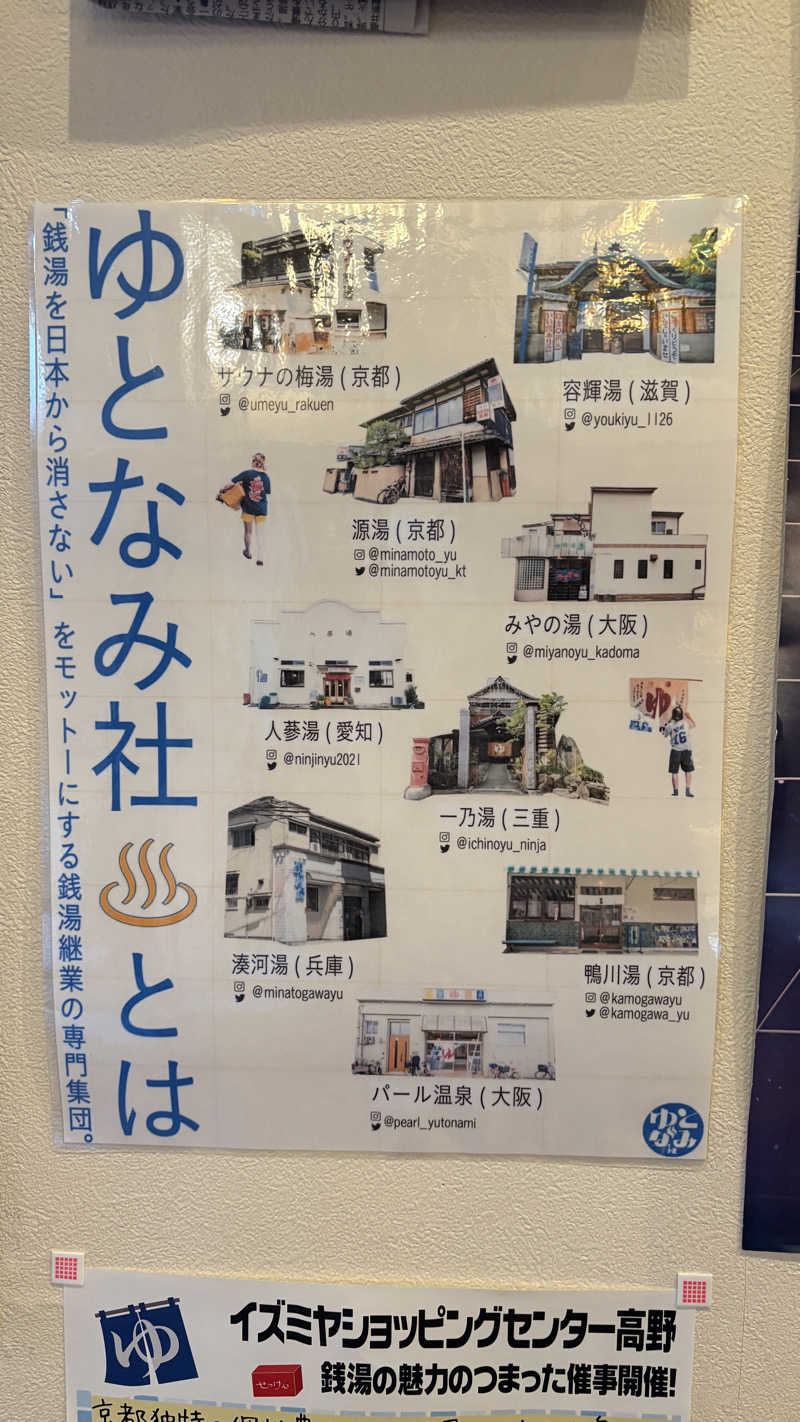 ゆとなみ社♨とは
「銭湯を日本から消さない」をモットーにする銭湯継業の専門集団。
サウナの梅湯(京都)
@umeyu_rakuen
容輝湯(滋賀)
@youkiyu_1126
源湯(京都)
@minamoto_yu
@minamotoyu_kt
みやの湯(大阪)
@miyanoyu_kadoma
人蔘湯(愛知)
@ninjinyu2021
一乃湯(三重)
@ichinoyu_ninja
湊河湯(兵庫)
@minatogawayu
鴨川湯(京都)
@kamogawayu
@kamogawa_yu
パール温泉(大阪)
@pearl_yutonami
ゆとなみ
ゆ
イズミヤショッピングセンター高野
せっけん
銭湯の魅力のつまった催事開催!